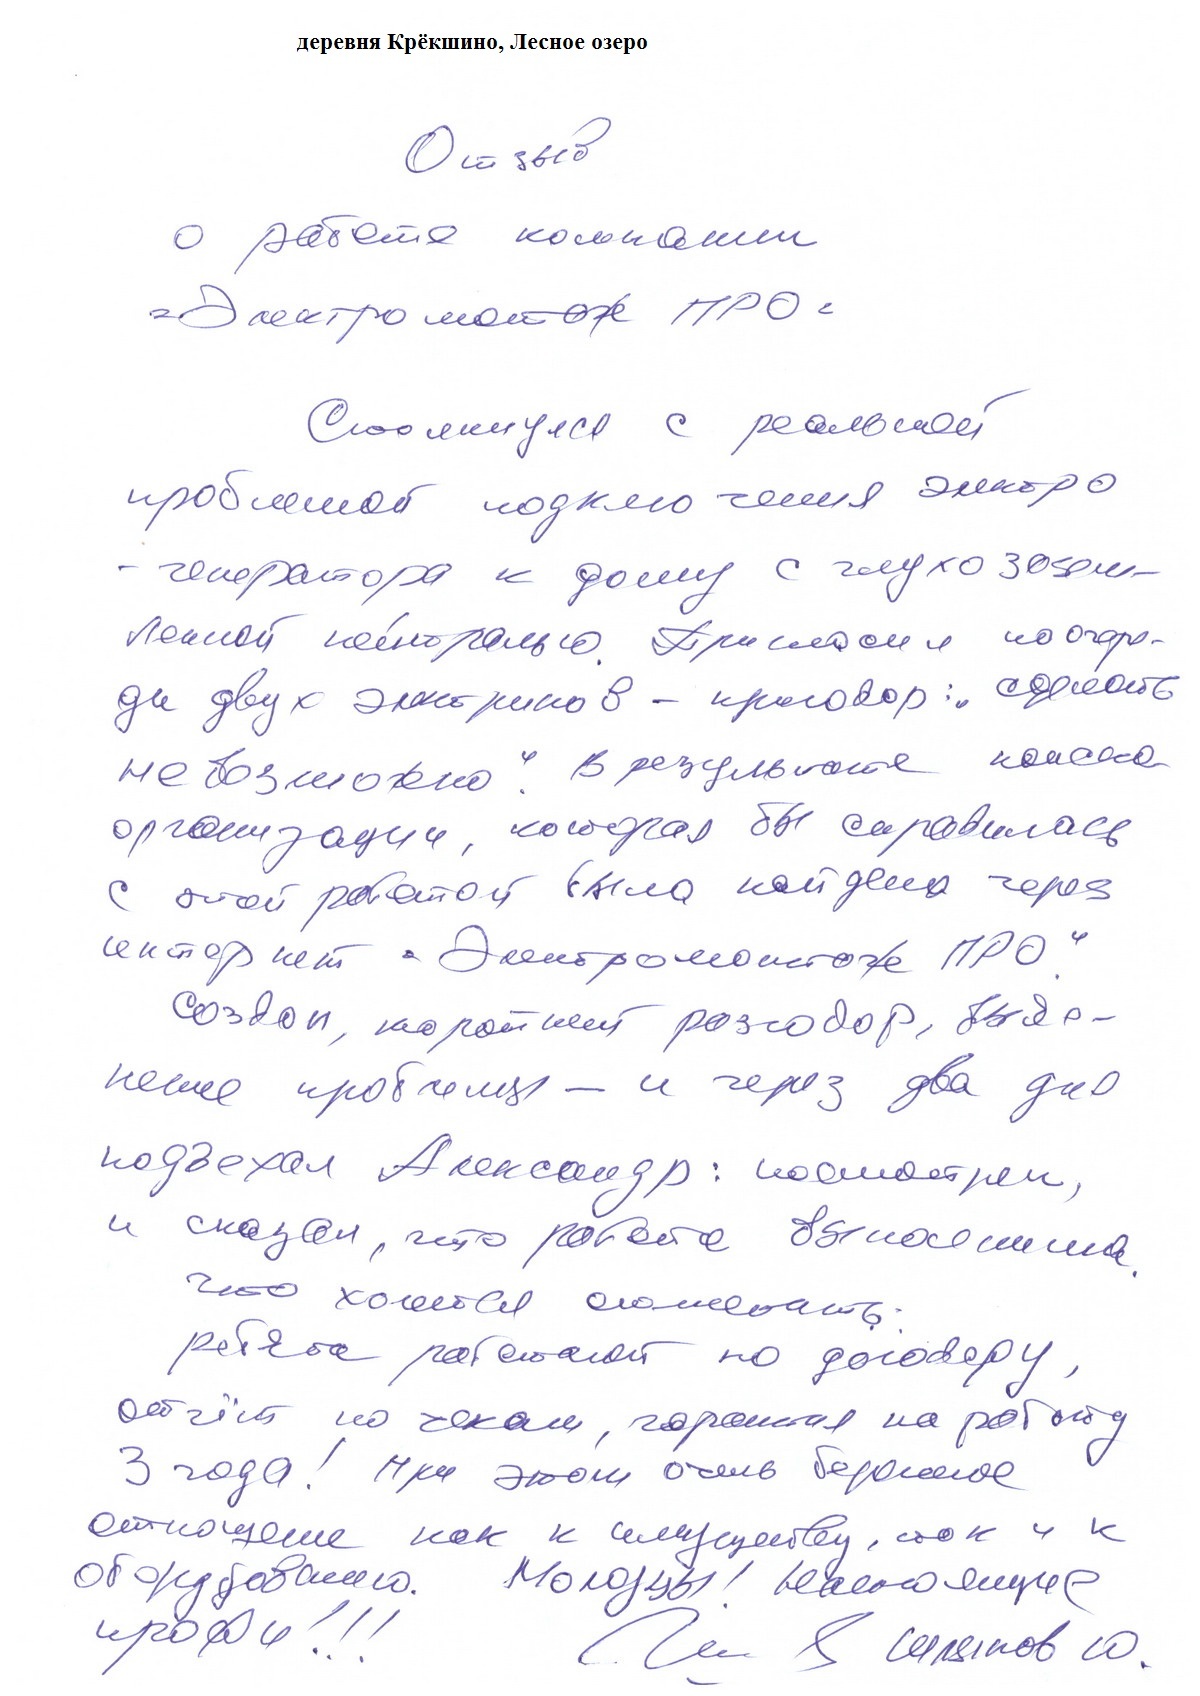 деревня Крёкшино, Лесное озеро
Отзыв
о работе компании
"Электромонтаж ПРО"
Столкнулся с реальной
проблемой подключения электро
-генератора к дому с глухо зазем-
ленной нейтралью. Пригласил поочере-
ди двух электриков - приговор: "сделать
невозможно". В результате поиска
организации, которая бы справилась
с этой работой была найдена через
интернет "Электромонтаж ПРО".
Созвон, короткий разговор, выяс-
нение проблемы — и через два дня
подъехал Александр: посмотрел,
и сказал, что работа выполнима.
Что хочется отметить:
ребята работают по договору,
отчёт по чекам, гарантия на работу
3 года! При этом очень бережное
отношение как к имуществу, так и к
оборудованию. Молодцы! Настоящие
профи!!!
Ю.